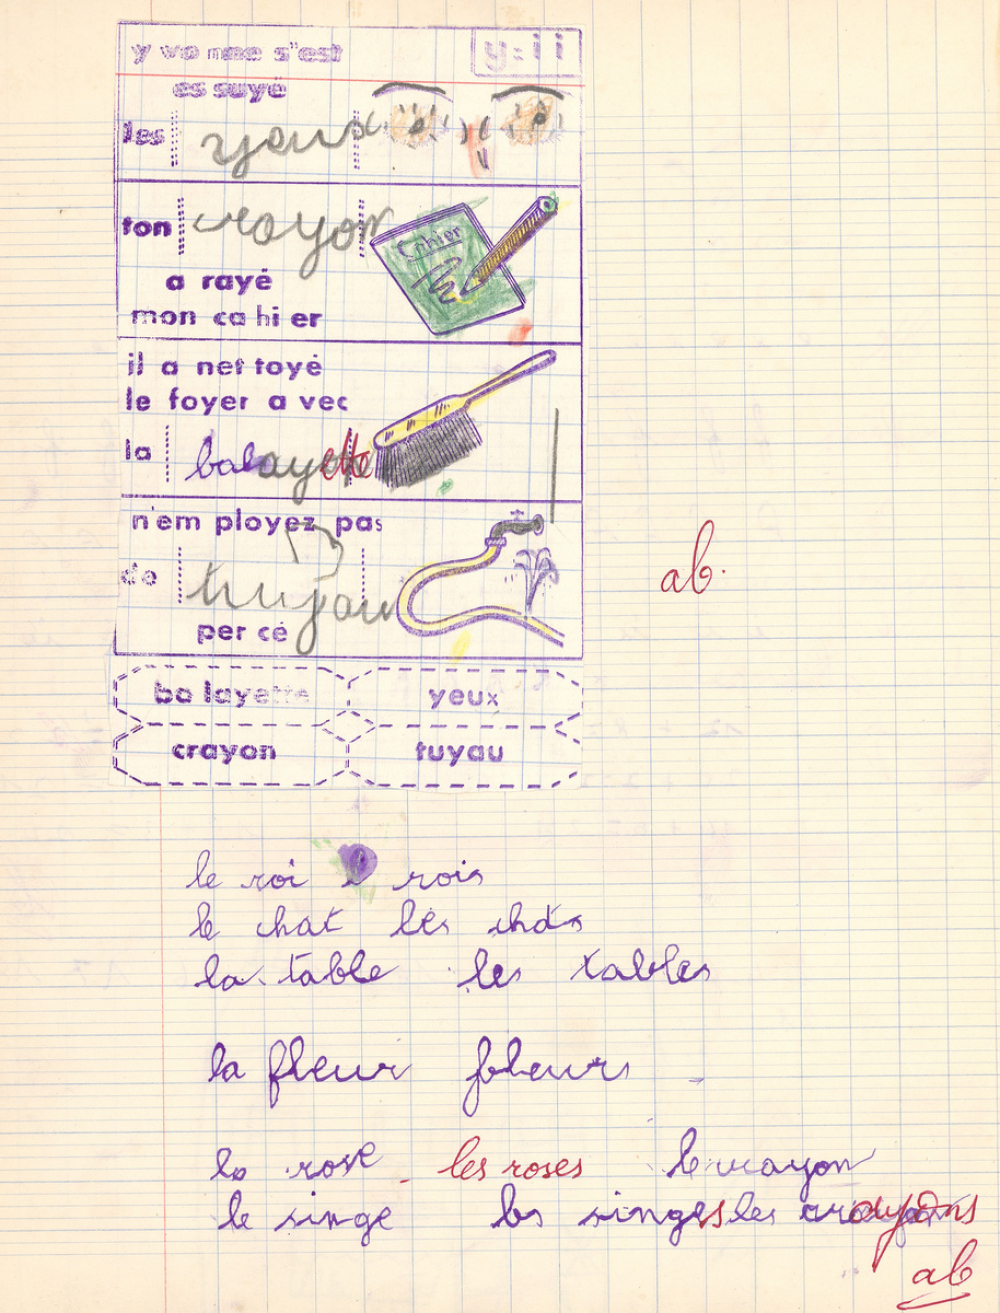 y vo nne s'est
y=i i
es suyé
les yeux
ton crayon
Cahier
a rayé
mon ca hi er
il a net toyé
le foyer a vec
la balayette
n'em ployez pas
de tuyau
per cé
ba layette yeux
crayon tuyau
ab.
le roi rois
le chat les chats
la table les tables
la fleur fleurs
la rose - les roses le crayon
le singe les singes les crayons
ab